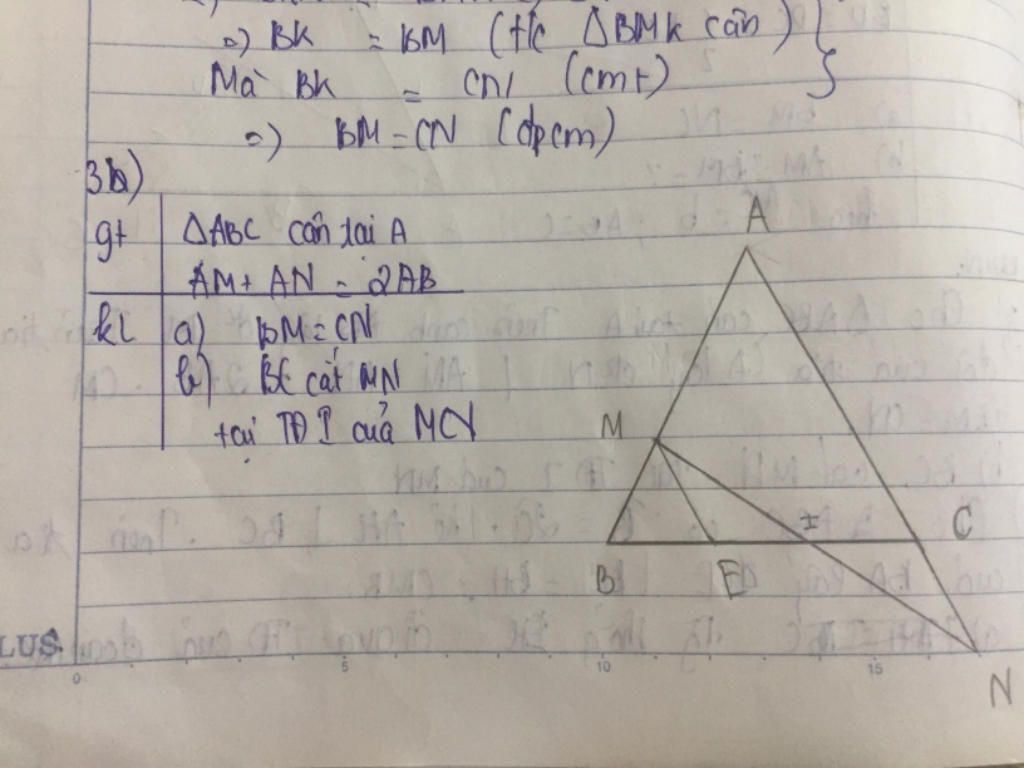 =) BK = BM (t/c ΔBMK cân) }
Mà BK = CN (cmt)
=) BM = CN (đpcm)
3b)
gt ΔABC cân tại A
AM + AN = 2AB
kl a) BM = CN
b) BC cắt MN
tại TĐ I của MN
A
M
I
C
B
E
N
LUS
0 5 10 15